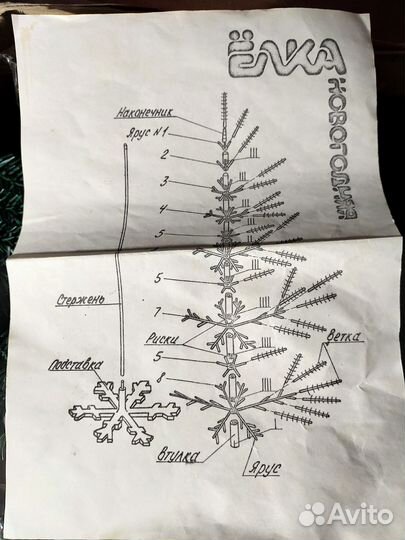 ЁЛКА
НОВОГОДНЯЯ
Наконечник
Ярус N1
2
III
3
III
4
III
5
III
III
5
III
7
Риски
IIII
Стержень
5
III
Ветка
Подставка
8
IIII
Втулка
Ярус
Avito